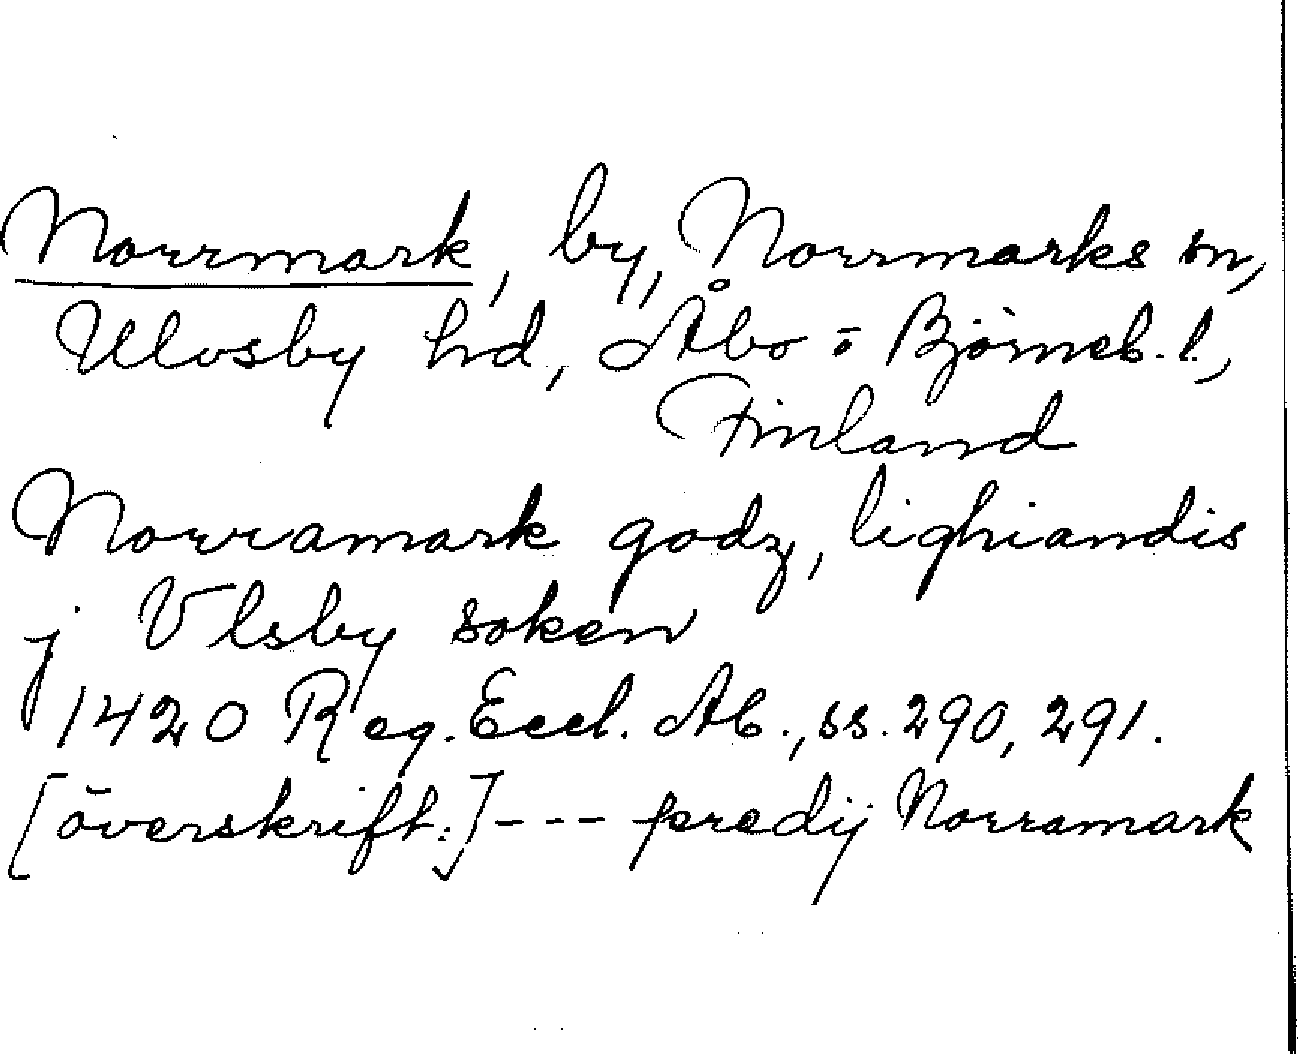 Norrmark, by, Norrmarks sn,
Ulvsby hd, Åbo o Björneb. l.,
Finland
Norramark godz, lighiandis
j Vlsby soken
1420 Reg. Eccl. Ab., ss. 290, 291.
[överskrift:] --- predij Norramark